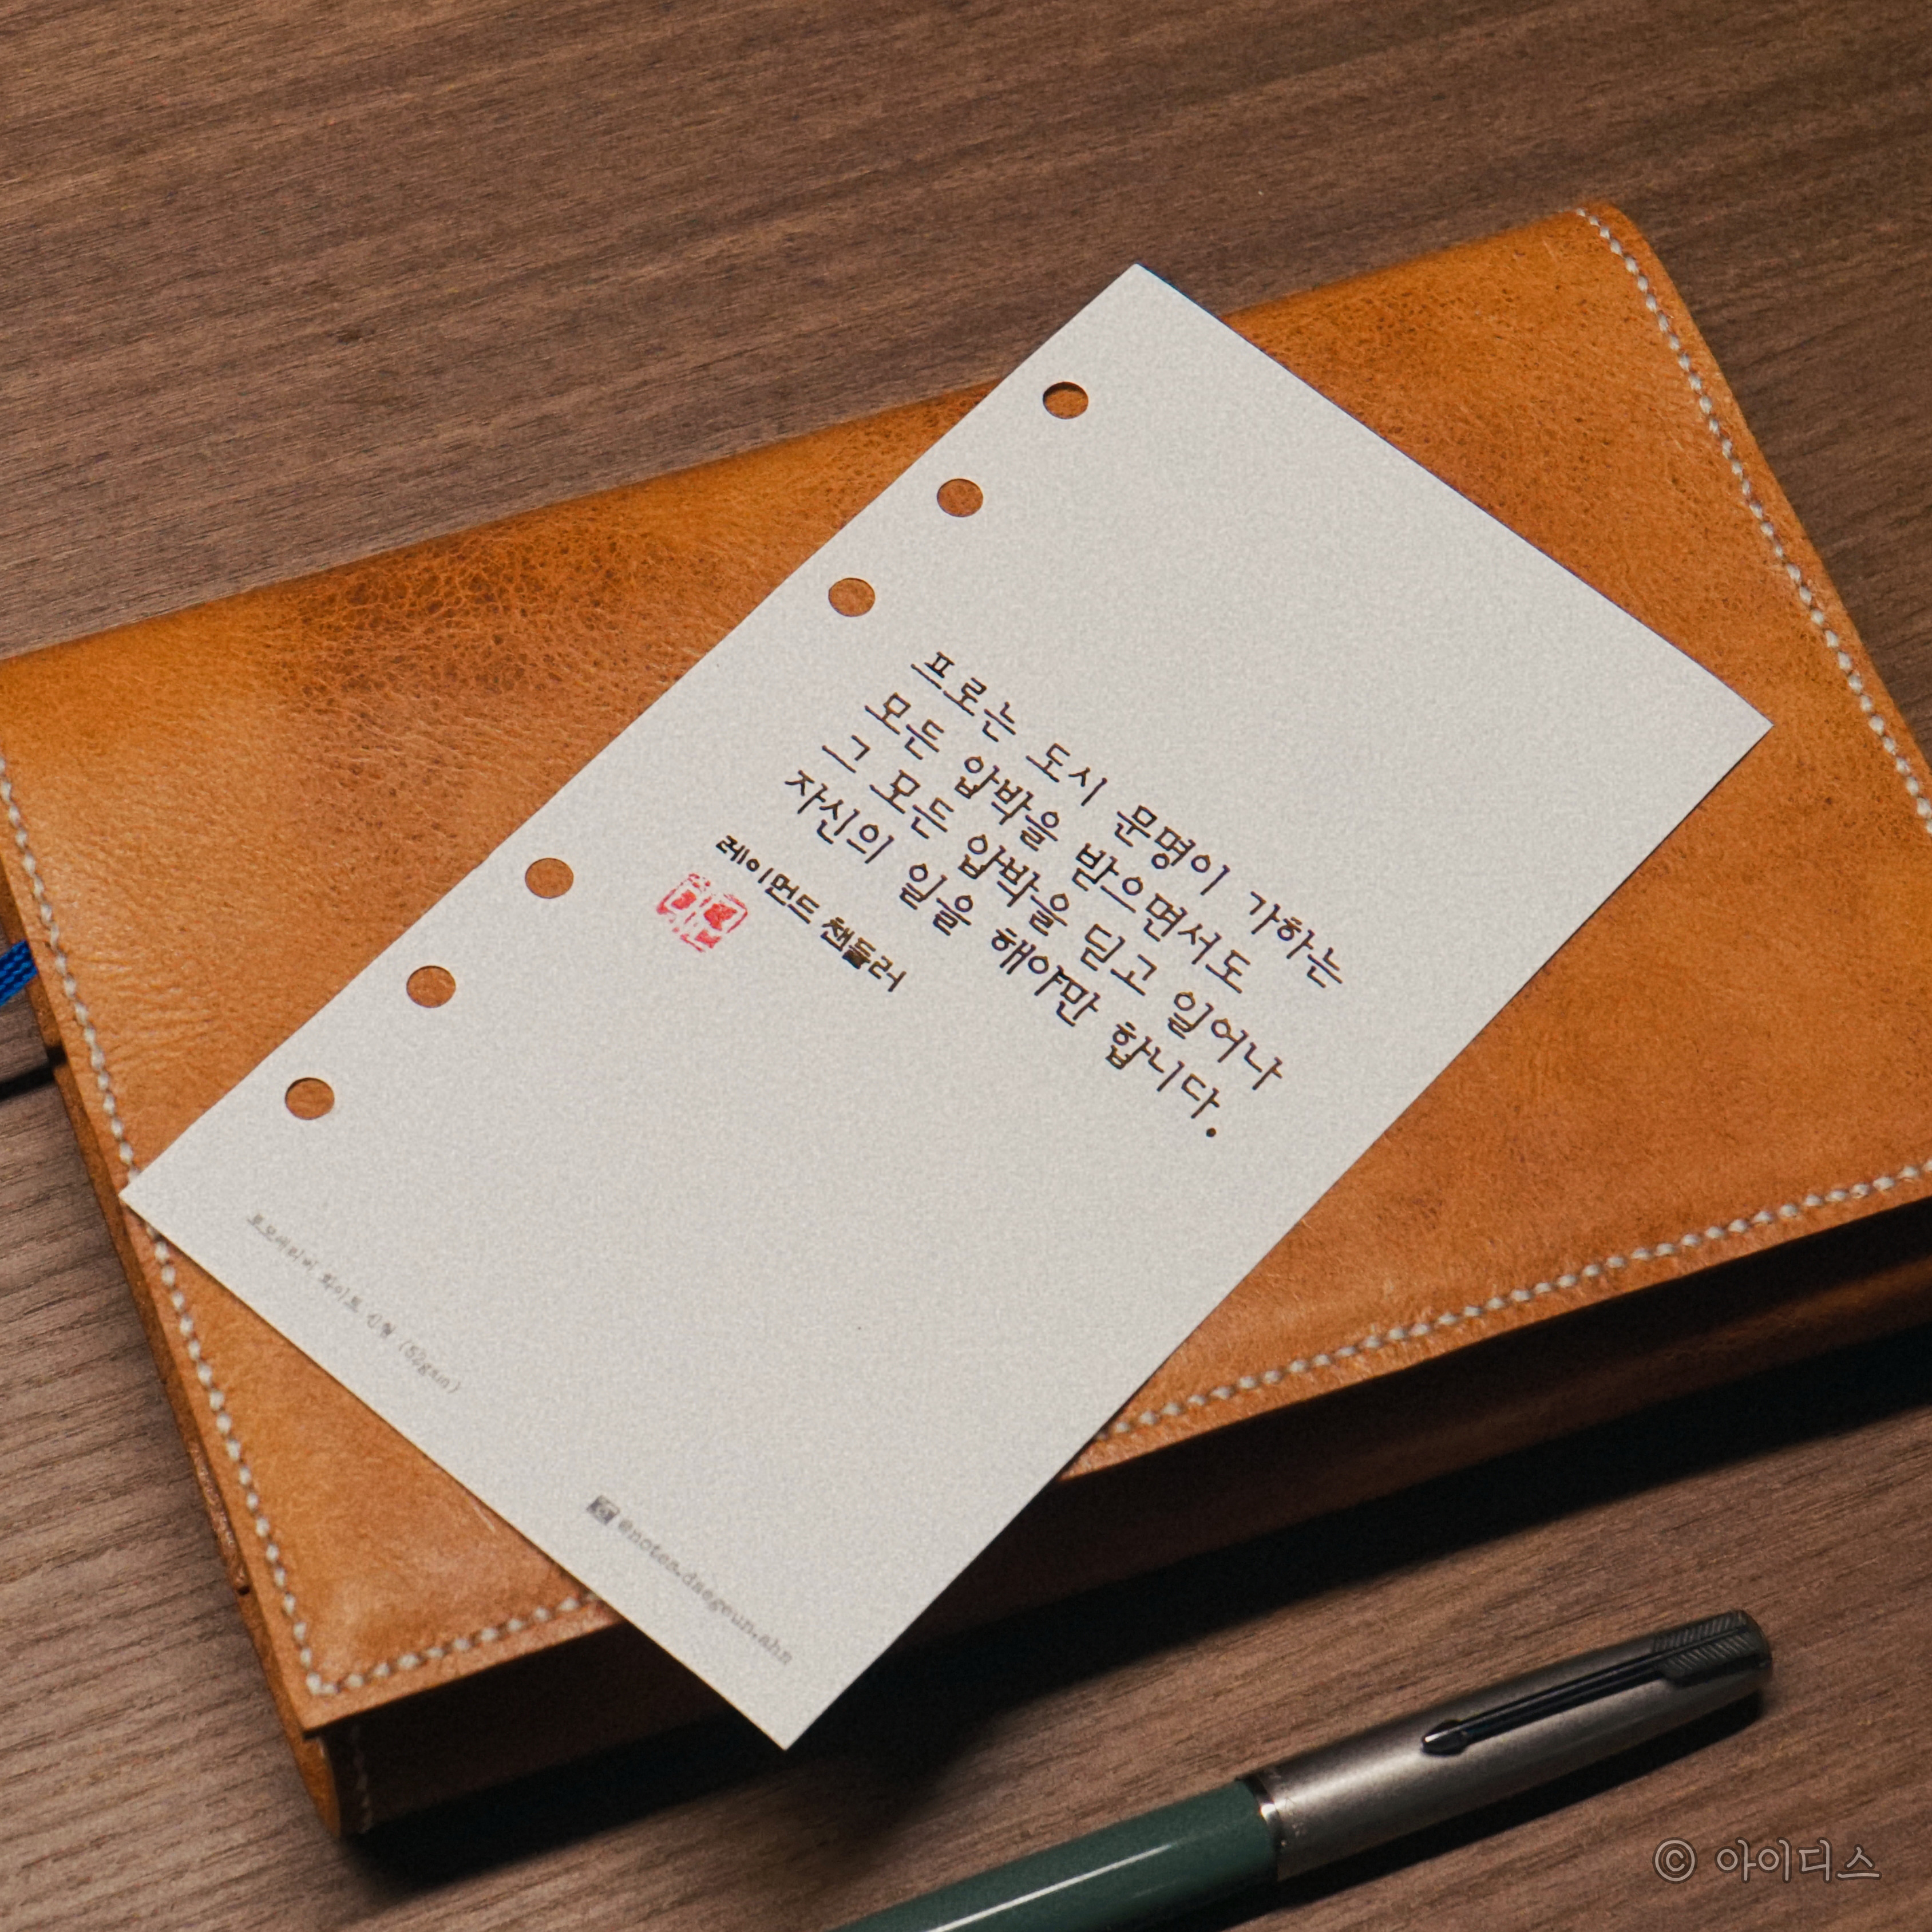 프로는 도시 문명이 가하는
모든 압박을 받으면서도
그 모든 압박을 딛고 일어나
자신의 일을 해야만 합니다.
레이먼드 챈들러
토모에리버 화이트 신형 (52gsm)
@noten.daegeun.ahn
© 아이디스